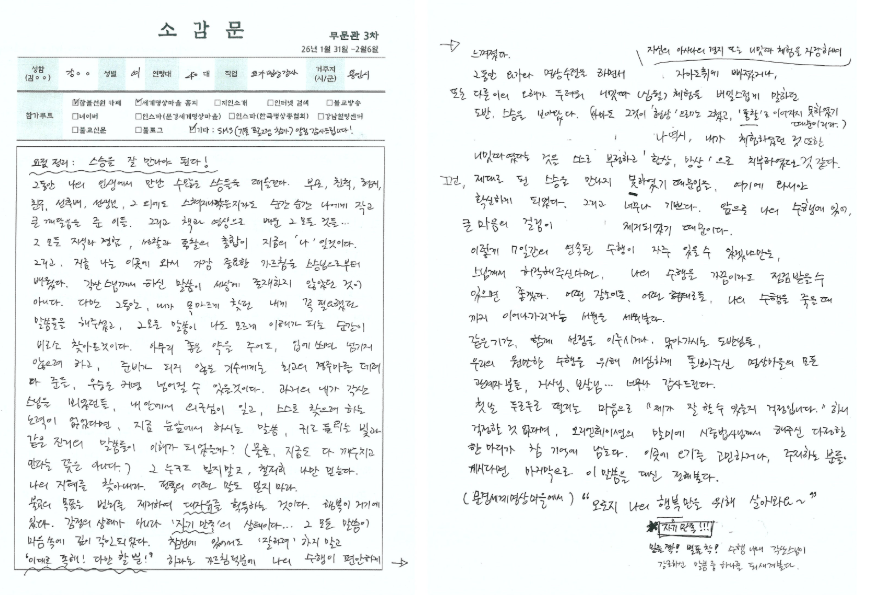 소 감 문
무문관 3차
26년 1월 31일 ~2월6일
성함
(김○○)
강○○
성별
여
연령대
40 대
직업
요가명상강사
거주지
(시/군)
용인시
참가루트
☑참불선원 카페
☑세계명상마을 홈피
□지인소개
□인터넷 검색
□불교방송
□네이버
□인스타(문경세계명상마을)
□인스타(한국명상총협회)
□강남힐링센터
□불교신문
□블로그
☑기타 : SMS
요점 정리 : 스승을 잘 만나야 된다!
그동안 나의 인생에서 만난 수많은 스승들을 떠올린다. 부모, 친척, 형제,
친구, 선후배, 선생님, 그 외에도 순간 순간 나에게 작고
큰 깨달음을 준 이들. 그리고 책과 영상으로 배운 그 모든 것들…
그 모든 지식과 경험, 통찰의 총합이 지금의 '나' 일것이다.
그리고, 지금 나는 이곳에 와서 가장 중요한 가르침을 스승님으로부터
배웠다. 각산스님께서 하신 말씀이 세상에 존재하지 않았던 것이
아니다. 다만 그동안, 내가 목마르게 찾던 내게 꼭 필요했던
말씀들을 해주셨고, 그 모든 말씀이 나도 모르게 이해가 되는 순간이
비로소 찾아온것이다. 아무리 좋은 약을 주어도, 입에 쓰면 넘기지
않으려 하고, 준비가 되지 않은 기수에게는 최고의 경주마를 데려
다 준들, 우승은 커녕 넘어질 수 있는것이다. 과거의 내가 각산
스님을 뵈었던들, 내 안에서 의구심이 일고, 스스로 찾으려 하는
노력이 없었다면, 지금 눈앞에서 하시는 말씀, 귀로 들리는 빛과
같은 진리의 말씀들이 이해가 되었을까? (물론, 지금도 다 깨우치고
안다는 뜻은 아니다.) 그 누구도 믿지말고, 철저히 나만 믿는다.
나의 지혜를 찾아내라. 전통의 어떤 말도 믿지 마라.
불교의 목표는 번뇌를 제거하여 대자유를 획득하는 것이다. 행복이 거기에
있다. 감정의 상태가 아니라 '자기 만족'의 상태이다… 그 모든 말씀이
마음속에 깊이 각인되었다. 참선에 있어서도 '잘하려' 하지 말고
"이대로 족해! 다만 할 뿐!" 하라는 가르침덕분에 나의 수행이 편안하게
느껴졌다.
그동안 요가와 명상수련을 하면서 자아도취에 빠졌거나,
또는 다른이의 오해가 두려워 체험을 비밀스럽게 말하던
도반, 스승을 보아왔다.
나 역시, 내가 체험하였던 것 또한
스스로 부정하고 '환상, 망상'으로 치부하였던것 같다.
그건, 제대로 된 스승을 만나지 못하였기 때문임을, 여기에 와서야
확실하게 되었다. 그리고 너무나 기쁘다. 앞으로 나의 수행에 있어,
큰 마음의 걸림이 제거되었기 때문이다.
이렇게 7일간의 연속된 수행이 자주 있을 수 있겠냐만은,
스님께서 허락해주신다면, 나의 수행을 가끔이라도 점검받을수
있으면 좋겠다. 어떤 강도이든, 어떤 형태로든, 나의 수행을 죽을 때
까지 이어나가리라는 서원을 세워본다.
같은 기간, 함께 선정을 이루시거나, 맑아가시는 도반님들,
우리의 원만한 수행을 위해 세심하게 돌봐주신 명상마을의 모든
관계자분들, 거사님, 보살님… 너무나 감사드린다.
첫날 두근두근 떨리는 마음으로 "제가 잘 할 수 있을지 걱정입니다." 하니
걱정할 것 없다며, 오리엔테이션의 말미에 해주신 다정한
한 마디가 참 기억에 남는다. 이곳에 오기를 고민하거나, 주저하는 분들
계시다면 마지막으로 이 말씀을 대신 전해본다.
(문경세계명상마을에서) "오로지 나의 행복만을 위해 살아봐요~"
자유만족!!!
수행 내내 각산스님이
강조하신 말씀 중 하나를 되새겨본다.